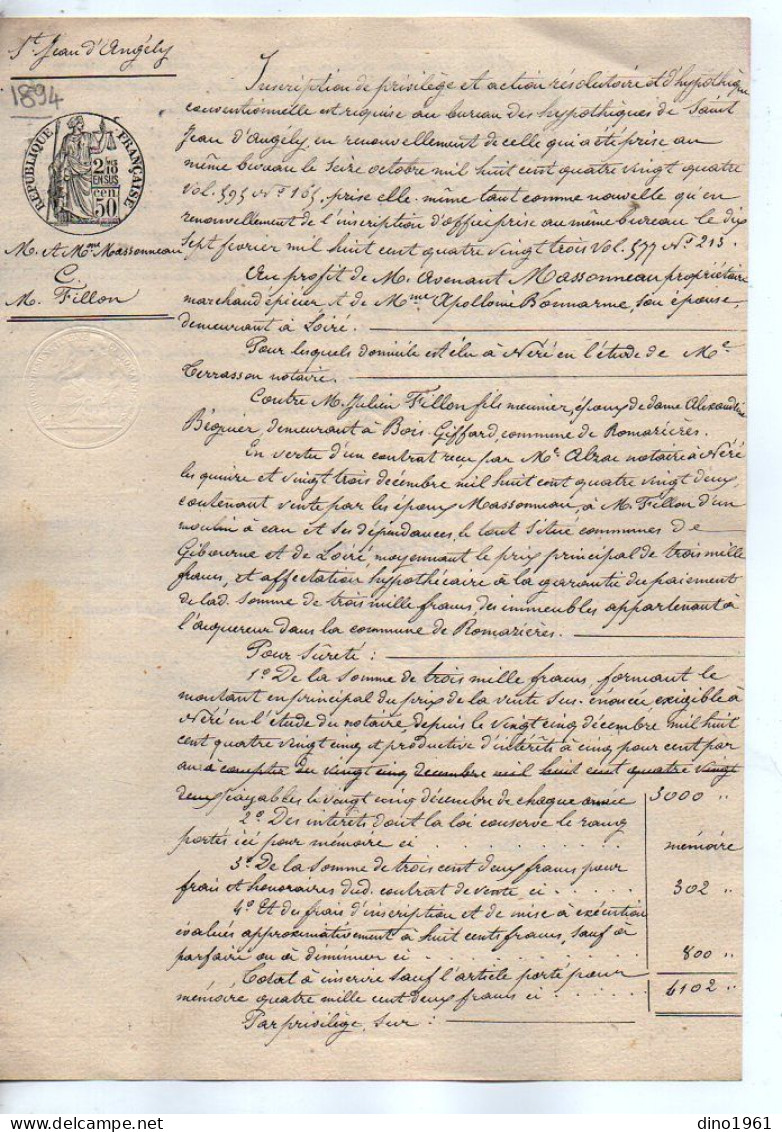 St Jean d'Angély
1894
RÉPUBLIQUE FRANÇAISE
2/10mes
EN SUS
50 cen
M. et Mme Massonneau
C.
M. Fillon
Inscription de privilège et action résolutoire et d'hypothèque
conventionnelle est requise au bureau des hypothèques de Saint
Jean d'Angély, en renouvellement de celle qui a été prise au
même bureau le seize octobre mil huit cent quatre vingt quatre
Vol. 595 No 165, prise elle-même tant comme nouvelle qu'en
renouvellement de l'inscription d'office prise au même bureau le dix
Sept février mil huit cent quatre vingt trois Vol. 577 No 213.
Au profit de M. Avenant Massonneau propriétaire
marchand épicier et de Mme Apollonie Bonnarme, son épouse,
demeurant à Loiré.
Pour lesquels domicile est élu à Néré en l'étude de Me
Terrasson notaire.
Contre M. Julien Fillon fils meunier, époux de dame Alexandrine
Béguier, demeurant à Bois-Giffard, commune de Romazières.
En vertu d'un contrat reçu par Me Alzac notaire à Néré
les quinze et vingt trois décembre mil huit cent quatre vingt deux,
contenant vente par les époux Massonneau, à M. Fillon d'un
moulin à eau et ses dépendances, le tout situé communes de
Gibourne et de Loiré, moyennant le prix principal de trois mille
francs, et affectation hypothécaire à la garantie du paiement
de lad. somme de trois mille francs, des immeubles appartenant à
l'acquereur dans la commune de Romazières.
Pour sûreté :
1o. De la somme de trois mille francs, formant le
montant en principal du prix de la vente sus-énoncée exigible à
Néré en l'étude du notaire, depuis le vingt cinq décembre mil huit
cent quatre vingt cinq et productive d'intérêts à cinq pour cent par
an à compter du vingt cinq décembre mil huit cent quatre vingt
deux payables le vingt cinq décembre de chaque année 3000 "
2o. Des intérêts dont la loi conserve le rang
portés ici pour mémoire ci . . . . . mémoire
3o. De la somme de trois cent deux francs pour
frais et honoraires dud. contrat de vente ci . . . . . 302 "
4o. Et des frais d'inscription et de mise à exécution
évalués approximativement à huit cents francs, sauf à
parfaire ou à diminuer ci . . . . . 800 "
Total à inscrire sauf l'article porté pour
mémoire quatre mille cent deux francs ci . . . . . 4102 "
Par privilège, sur :
dino1961